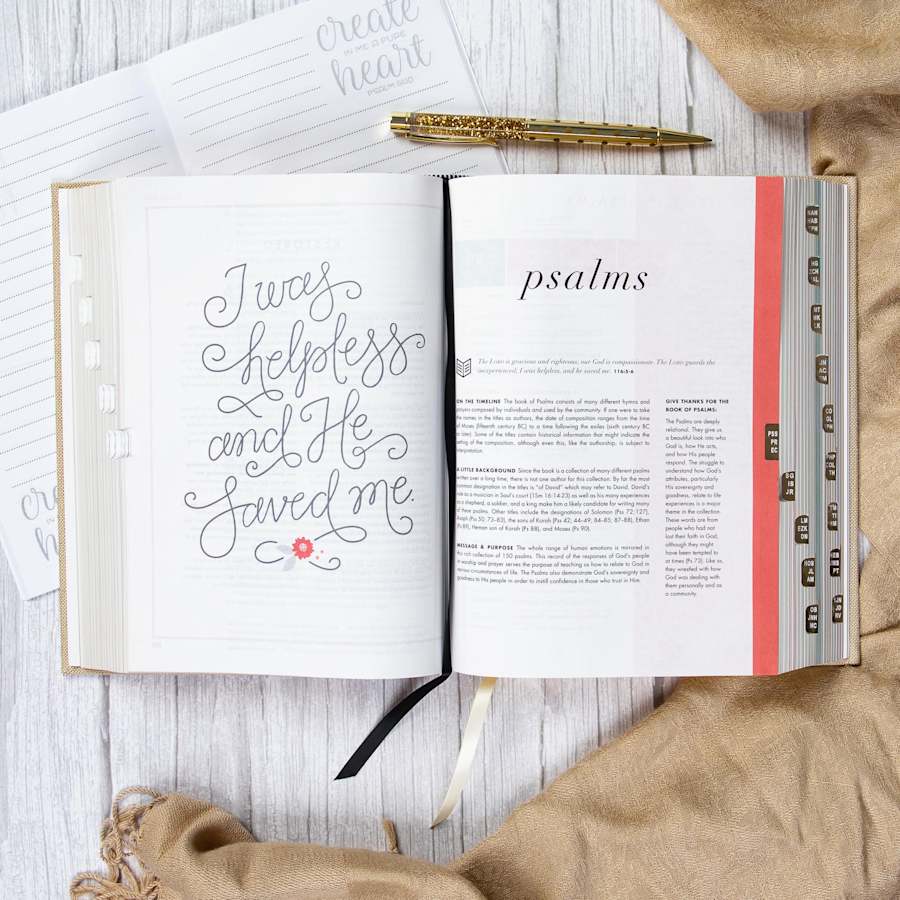 create
IN ME A PURE
heart
I was
helpless
and He
saved me.
psalms
The LORD is gracious and righteous; our God is compassionate. The LORD guards the
inexperienced; I was helpless, and he saved me. 116:5-6
ON THE TIMELINE The book of Psalms consists of many different hymns and
prayers composed by individuals and used by the community. If one were to take
the names in the titles as authors, the date of composition ranges from the time
of Moses (fifteenth century BC) to a time following the exiles (sixth century BC
or later). Some of the titles contain historical information that might indicate the
setting of the composition, although even this, like the authorship, is subject to
interpretation.
A LITTLE BACKGROUND Since the book is a collection of many different psalms
written over a long time, there is not one author for this collection. By far the most
common designation in the titles is "of David" which may refer to David. David's
role as a musician in Saul's court (1Sm 16:14-23) as well as his many experiences
as a shepherd, a soldier, and a king make him a likely candidate for writing many
of these psalms. Other titles include the designations of Solomon (Pss 72; 127),
Asaph (Pss 50; 73–83), the sons of Korah (Pss 42; 44–49; 84–85; 87–88), Ethan
(Ps 89), Heman son of Korah (Ps 88), and Moses (Ps 90).
MESSAGE & PURPOSE The whole range of human emotions is mirrored in
this rich collection of 150 psalms. This record of the responses of God's people
in worship and prayer serves the purpose of teaching us how to relate to God in
various circumstances of life. The Psalms also demonstrate God's sovereignty and
goodness to His people in order to instill confidence in those who trust in Him.
GIVE THANKS FOR THE
BOOK OF PSALMS:
The Psalms are deeply
relational. They give us
a beautiful look into who
God is, how He acts,
and how His people
respond. The struggle to
understand how God's
attributes, particularly
His sovereignty and
goodness, relate to life
experiences is a major
theme in the collection.
These words are from
people who had not
lost their faith in God,
although they might
have been tempted to
at times (Ps 73). Like us,
they wrestled with how
God was dealing with
them personally and as
a community.
NAH
HAB
ZPH
HG
ZCH
MAL
MT
MK
LK
JN
AC
RM
CO
GL
PH
PSS
PR
EC
PHP
COL
TH
SG
IS
JR
TM
TI
HM
LM
EZK
DN
HOS
JL
AM
HEB
JMS
PT
OB
JNH
MC
JN
JD
RV